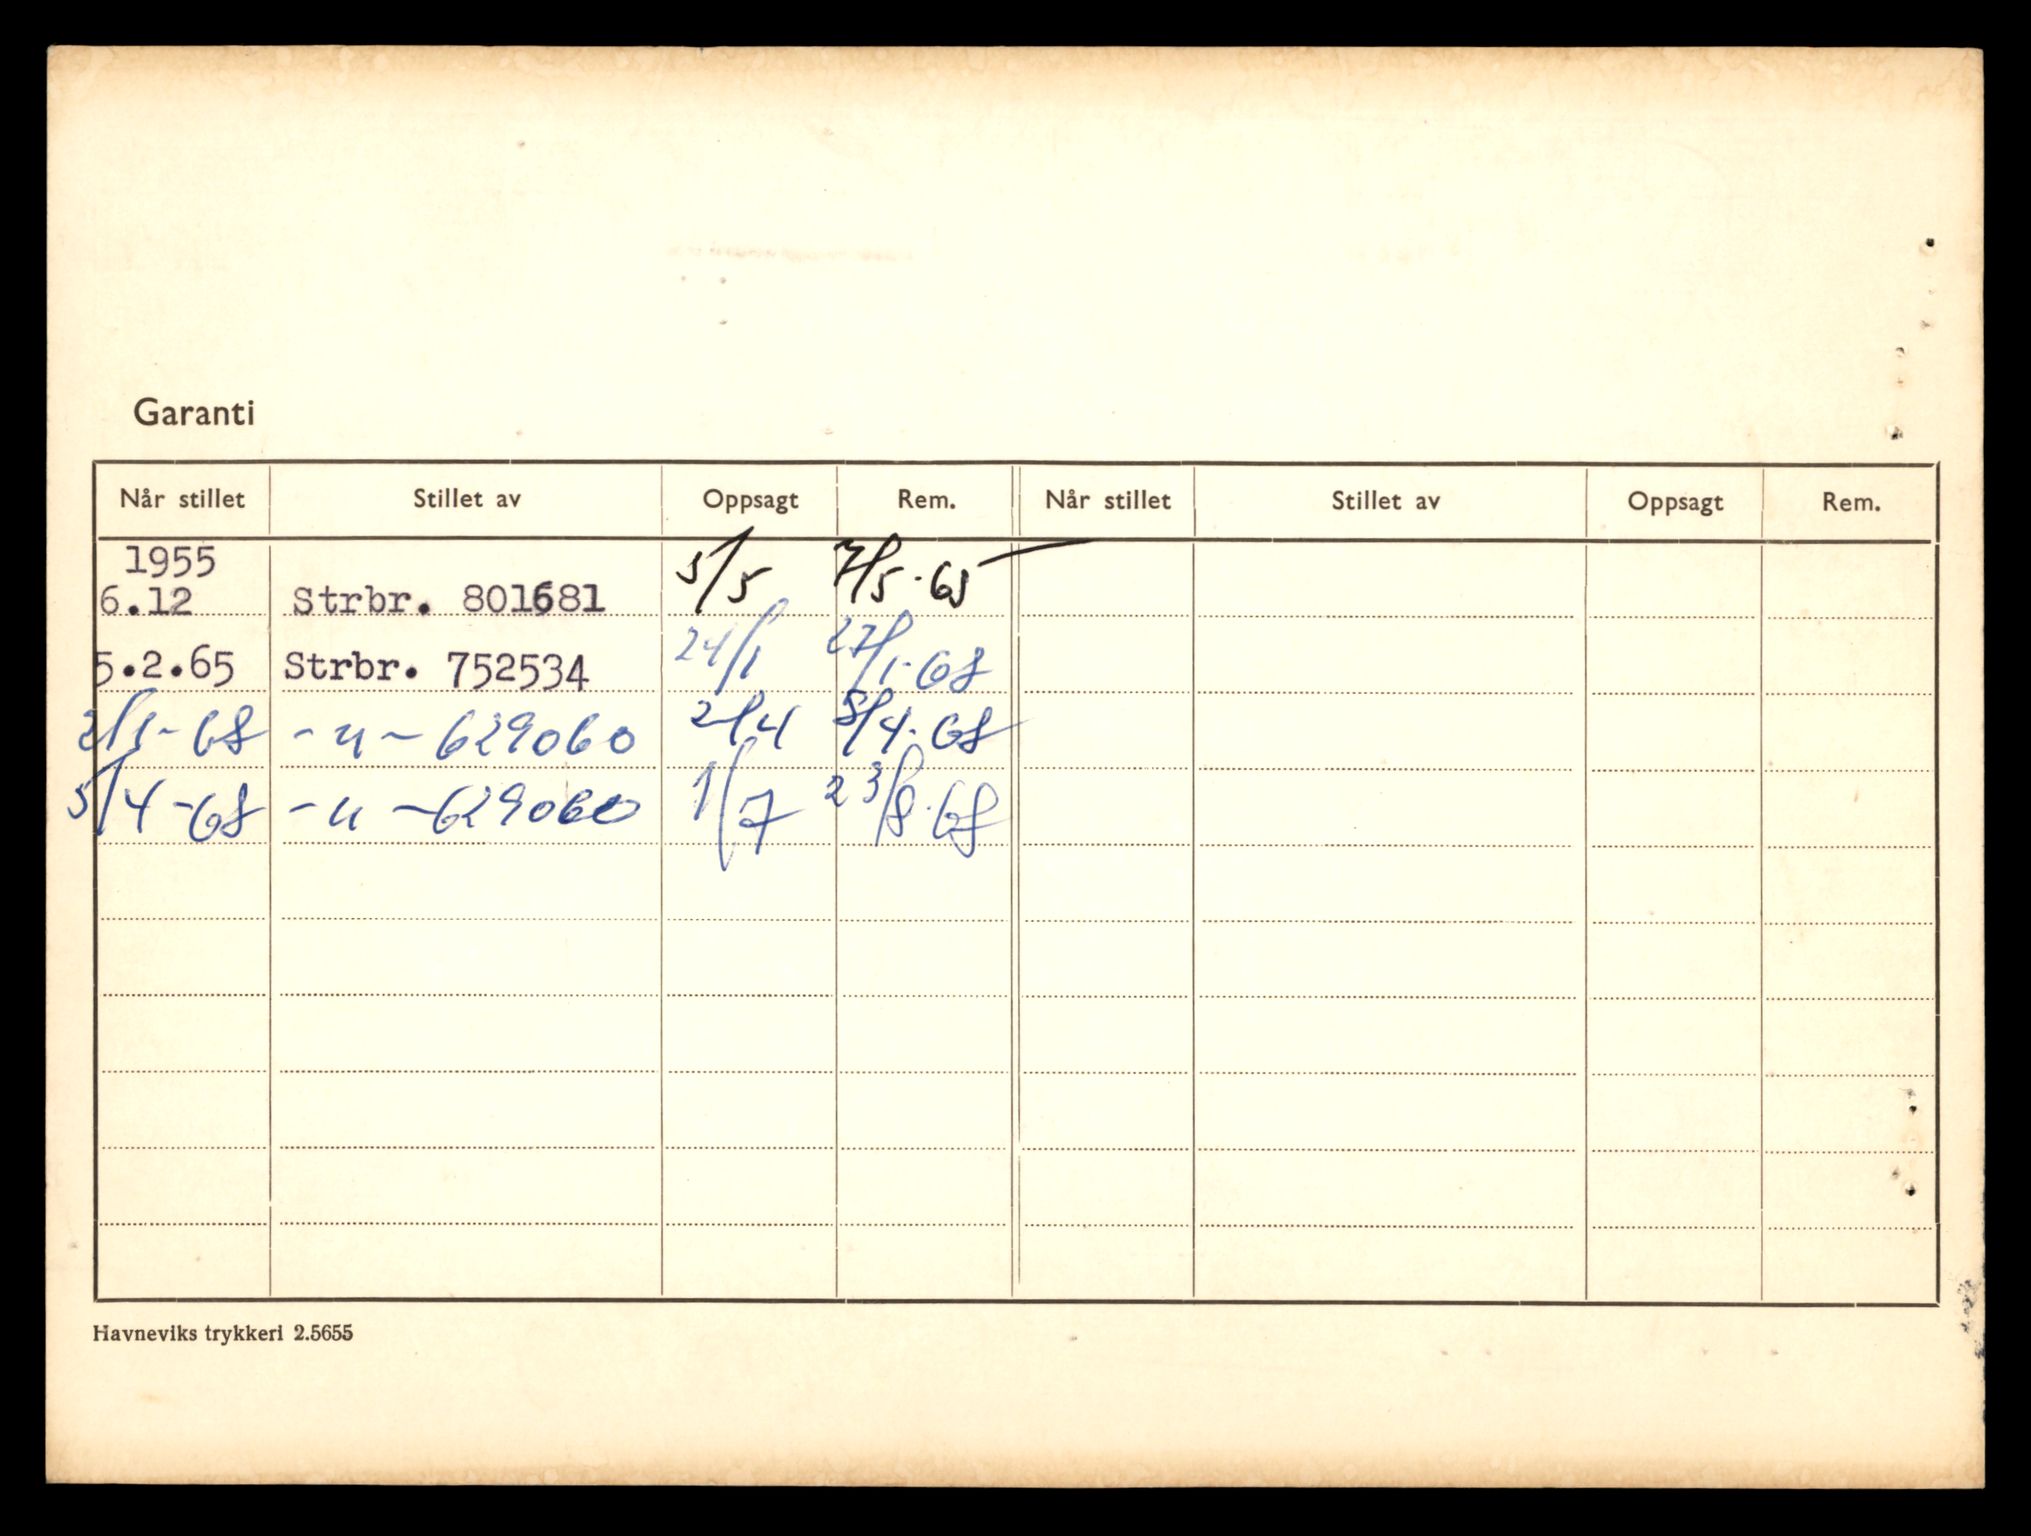 Garanti
Når stillet Stillet av Oppsagt Rem. Når stillet Stillet av Oppsagt Rem.
1955
6.12 Strbr. 801681 5/5 7/5.65
5.2.65 Strbr. 752534 24/1 27/1.68
2/1-68 -"- 629060 2/4 8/4.68
5/4-68 -"- 629060 1/7 23/8.68
Havneviks trykkeri 2.5655